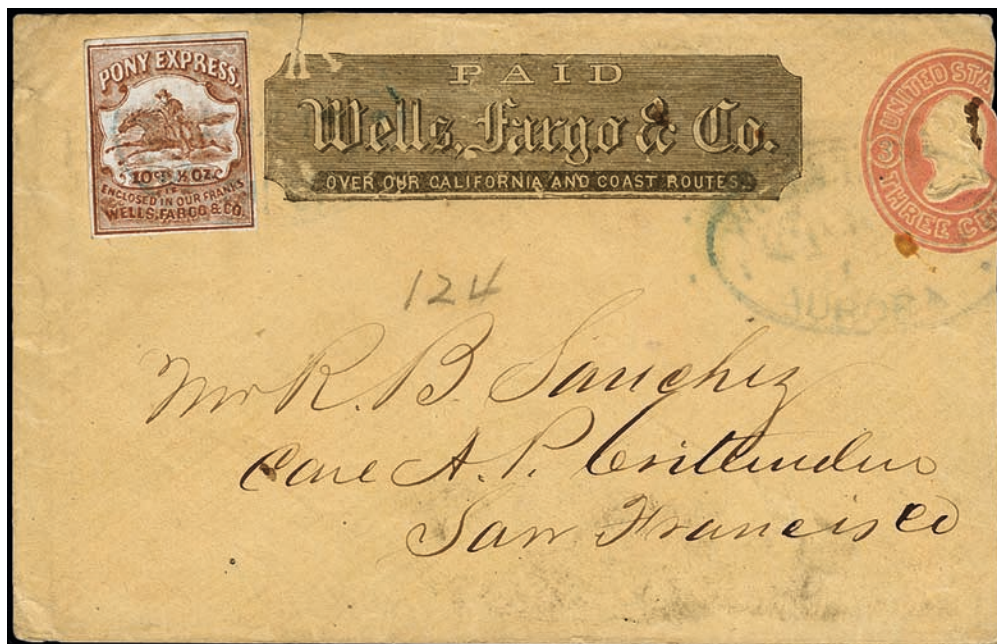 PONY EXPRESS.
10cts ½ OZ.
IF
ENCLOSED IN OUR FRANKS
WELLS, FARGO & CO.
PAID
Wells, Fargo & Co.
OVER OUR CALIFORNIA AND COAST ROUTES.
UNITED STA
3
THREE CE
AURORA
124
Mr R. B. Sanchez
Care A. P. Crittenden
San Francisco